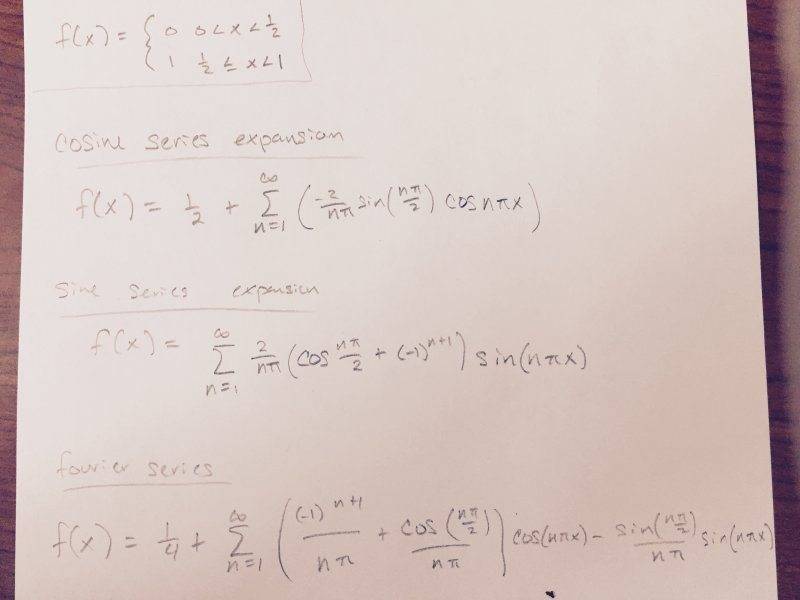 f(x) = { 0 0 < x < 1/2
1 1/2 ≤ x < 1
cosine series expansion
f(x) = 1/2 + ∑_{n=1}^{∞} (-2/nπ sin(nπ/2) cos nπx)
sine series expansion
f(x) = ∑_{n=1}^{∞} 2/nπ (cos nπ/2 + (-1)^{n+1}) sin(nπx)
fourier series
f(x) = 1/4 + ∑_{n=1}^{∞} ((-1)^{n+1}/nπ + cos(nπ/2)/nπ) cos(nπx) - sin(nπ/2)/nπ sin(nπx)